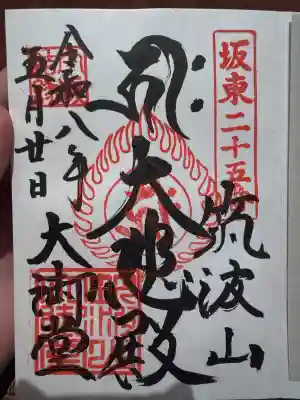 坂東二十五
筑波山
大悲殿
大御堂
令和八年
五月廿日